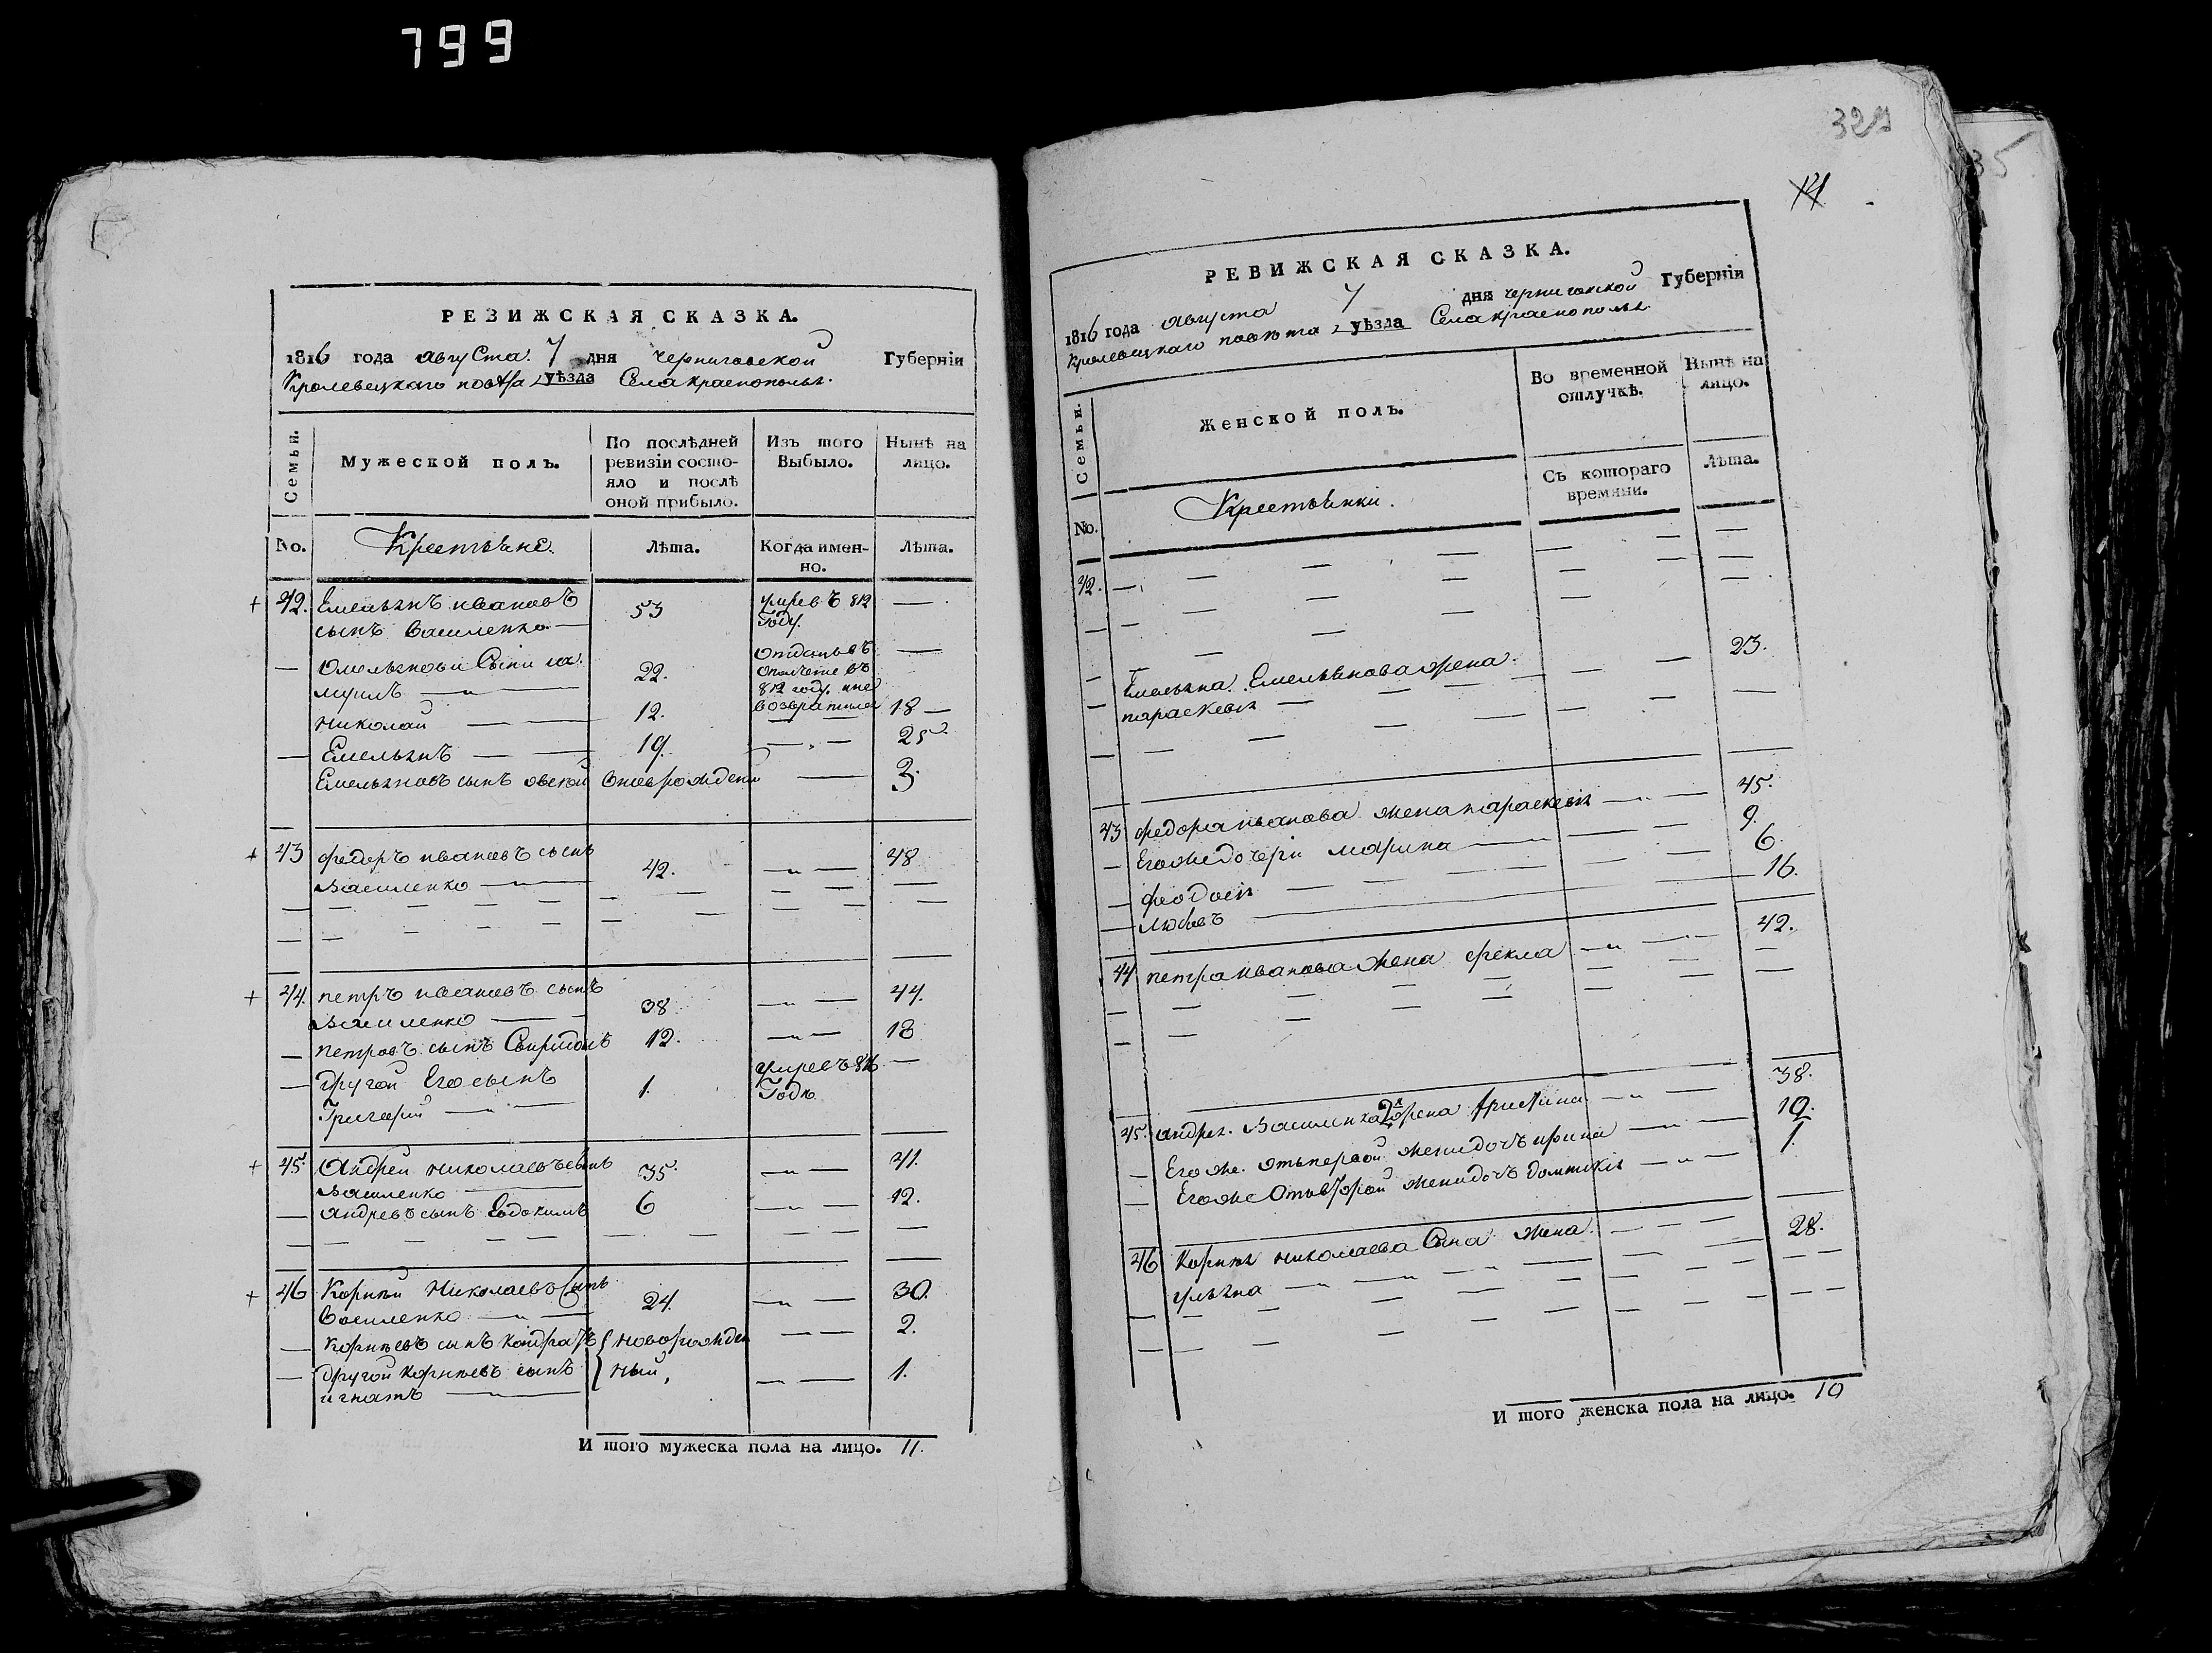 799
РЕВИЖСКАЯ СКАЗКА.
1816 года августа 7 дня Черниговской Губерніи
Кролевецкаго повѣта уѣзда Села краснополья
Семьи. Мужеской полъ. По послѣдней ревизіи состояло и послѣ оной прибыло. Изъ того Выбыло. Нынѣ на лицо.
No. Крестьяне. Лѣта. Когда именно. Лѣта.
+ 42. Емельянъ ивановъ 53 умре въ 812 —
сынъ Василенко — Году.
— Омельяновы Сыни 22. Отданъ въ —
— опалчение въ
812 году, и не
Николай — 12. возвратился 18 —
— Емельянъ — 19. — 25
Емельяновъ сынъ новорожденй — 3.
+ 43 федоръ ивановъ сынъ 42. — 48
Василенко —
+ 44. петръ ивановъ сынъ 38 — 44.
Василенко —
— петровъ сынъ Свиридонъ 12. — 18
— другой Его сынъ 1. умре въ —
Григорий — Годѣ
+ 45. Андрей николаевъ сынъ 35. — 41.
Василенко —
— Андреевъ сынъ Евдокимъ 6 — 12.
+ 46 Корнѣй Николаевъ Сынъ 24. — 30.
Василенко —
— Корнѣевъ сынъ Кондратъ новорожден — 2.
— другой корнѣевъ сынъ ный, — 1.
игнатъ —
И того мужеска пола на лицо. 11.
РЕВИЖСКАЯ СКАЗКА.
1816 года августа 7 дня Черниговской Губерніи
Кролевецкаго повѣта уѣзда Села краснополья
Семьи. Женской полъ. Во временной отлучкѣ. Нынѣ на лицо.
Съ котораго времяни. Лѣта.
No. Крестьянки.
42. —
— Емельяна Емельянова жена — 23.
— параскевия —
43 федора иванова жена параскевия — 45.
— Егоже дочери марина — 9.
— феодосия — 6.
— Любовъ — 16.
44 петра иванова жена фекла — 42.
45. андрея Василенка 2я жена — 38.
— Егоже отъ первой жени дочъ ирина — 19.
— Егоже отъ второй жени дочъ домникия — 1.
46 Корнѣя николаева Сына жена — 28.
улияна —
И того женска пола на лицо. 10